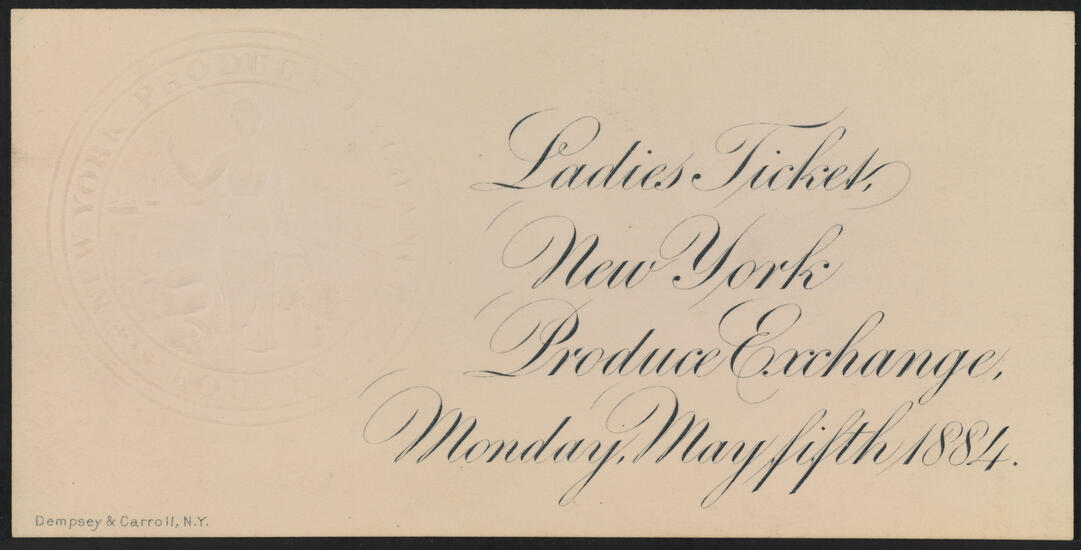 NEW YORK PRODUCE EXCHANGE
Ladies Ticket,
New York
Produce Exchange,
Monday, May fifth 1884.
Dempsey & Carroll, N.Y.